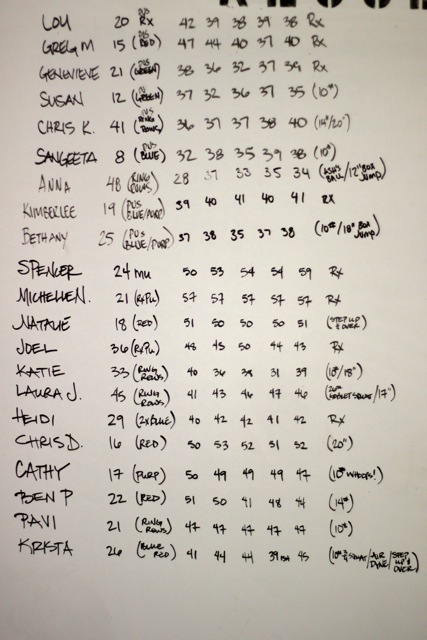 LOU 20 PUS RX 42 39 38 39 38 RX
GREG M 15 (PUS RED) 47 44 40 37 40 RX
GENEVIEVE 21 (PUS GREEN) 38 36 32 37 39 RX
SUSAN 12 (PUS GREEN) 37 32 36 37 35 (10#)
CHRIS K. 41 (PUS RING ROWS) 36 37 37 38 40 (14#/20")
SANGEETA 8 (PUS BLUE) 32 38 35 39 38 (10#)
ANNA 48 (RING ROWS) 28 37 33 35 34 BALL/12" BOX JUMP)
KIMBERLEE 19 (PUS BLUE/PURP) 39 40 41 40 41 RX
BETHANY 25 (PUS BLUE/PURP) 37 38 35 37 38 (10#/18" BOX JUMP)
SPENCER 24 MU 50 53 54 54 59 RX
MICHELLE N. 21 (RXPU) 57 57 57 57 57 RX
NATALIE 18 (RED) 51 50 50 50 51 (STEP UP & OVER)
JOEL 36 (RXPU) 48 45 50 44 43 RX
KATIE 33 (RING ROWS) 40 36 38 31 39 (10#/18")
LAURA J. 45 (RING ROWS) 41 43 46 47 46 (20# GOBLET SQUAT/17")
HEIDI 29 (2XBLUE) 40 42 42 41 42 RX
CHRIS D. 16 (RED) 50 53 52 51 52 (20")
CATHY 17 (PURP) 50 49 49 49 47 (10# WHOOPS!)
BEN P 22 (RED) 51 50 41 48 44 (14#)
PAVI 21 (RING ROWS) 47 47 47 47 47 (10#)
KRISTA 26 (BLUE RED) 41 44 44 39 45 SQUAT/AIR DYNE/STEP UP & OVER)